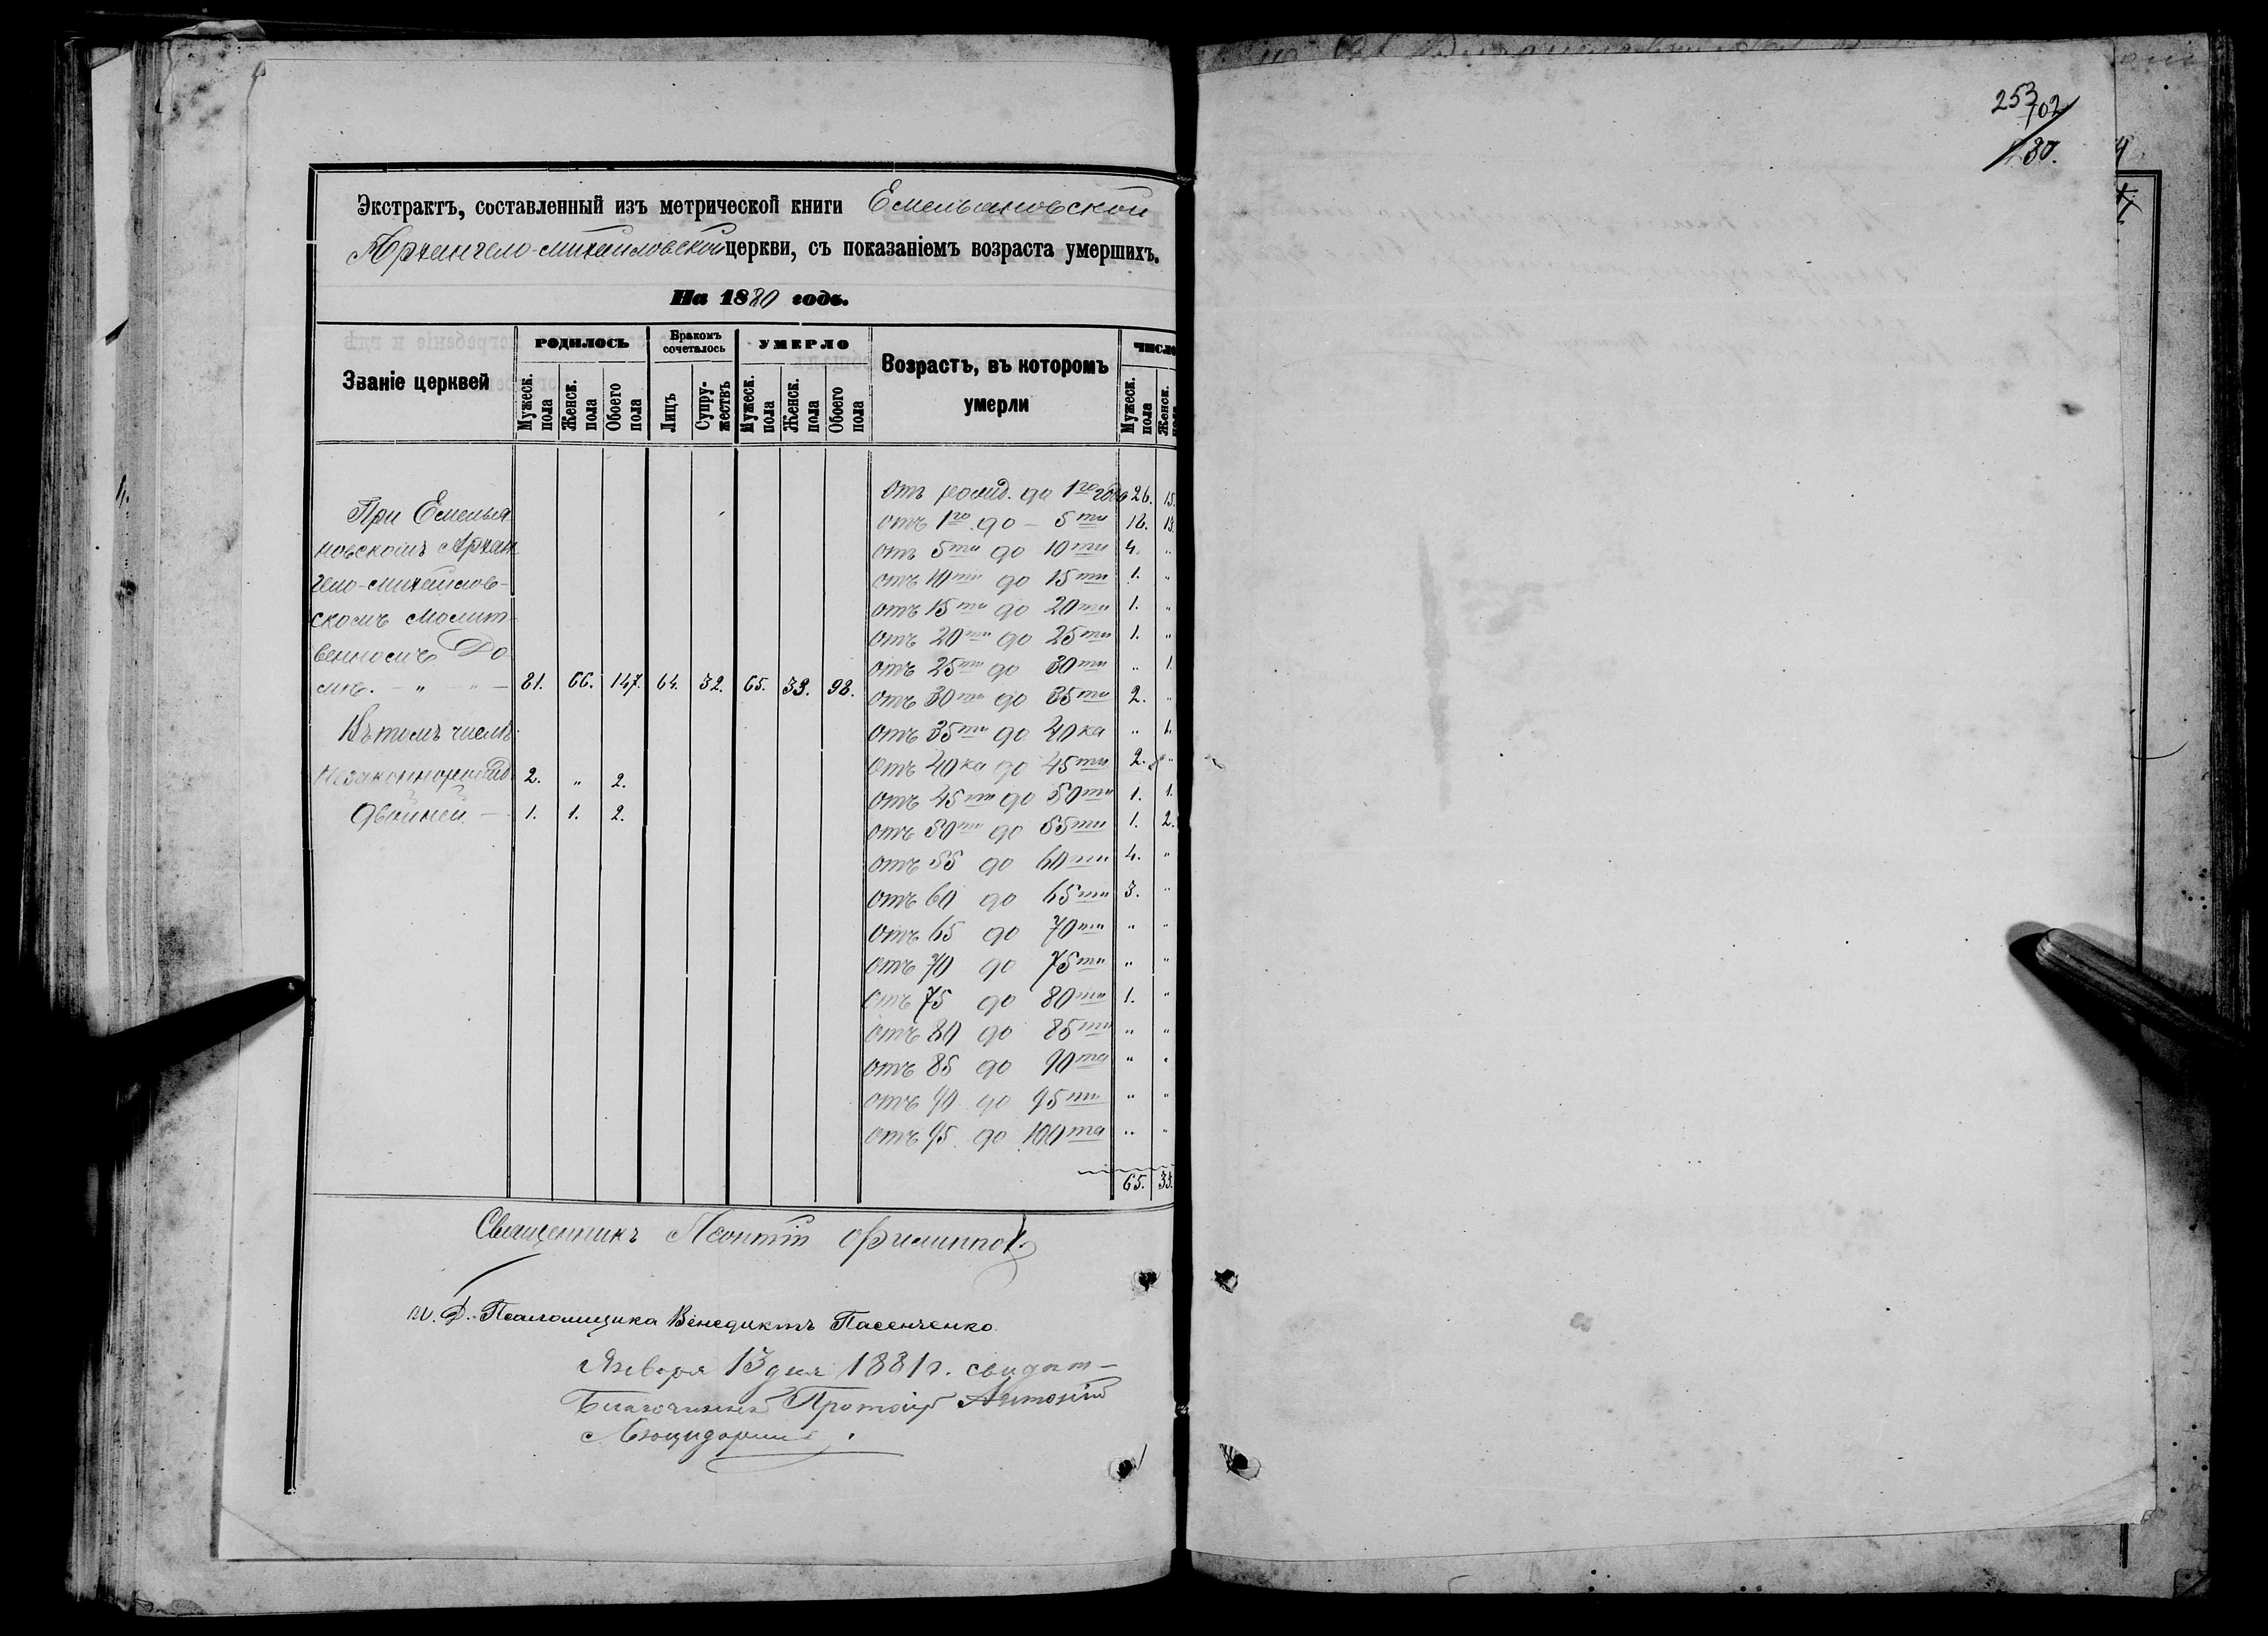 253
102
280.
Экстрактъ, составленный изъ метрической книги Емельяновской
Архангело-михайловской церкви, съ показаніемъ возраста умершихъ.
На 1880 годъ.
Званіе церквей
РОДИЛОСЬ
Бракомъ сочеталось
УМЕРЛО
Возрастъ, въ которомъ умерли
ЧИСЛО
Мужеск. пола
Женск. пола
Обоего пола
Лицъ
Супружествъ
Мужеск. пола
Женск. пола
Обоего пола
Мужеск. пола
Женск. пола
При Емелья-
новскомъ Архан
гело-михайлов-
скомъ Молит
венномъ До
мѣ. - " - " - 81. 66. 147. 64. 32. 65. 33. 98.
Въ томъ числѣ:
Незаконнорожд. 2. " 2.
Двойней - 1. 1. 2.
Отъ рожд. до 1го года 26. 15.
отъ 1го до - 5ти 18. 13.
отъ 5ти до 10ти 4. "
отъ 10ти до 15ти 1. "
отъ 15ти до 20ти 1. "
отъ 20ти до 25ти 1. "
отъ 25ти до 30ти " 1.
отъ 30ти до 35ти 2. "
отъ 35ти до 40ка " 1.
отъ 40ка до 45ти 2. "
отъ 45ти до 50ти 1. 1.
отъ 50ти до 55ти 1. 2.
отъ 55 до 60ти 4. "
отъ 60 до 65ти 3. "
отъ 65 до 70ти " "
отъ 70 до 75ти " "
отъ 75 до 80ти 1. "
отъ 80 до 85ти " "
отъ 85 до 90та " "
отъ 90 до 95ти " "
отъ 95 до 100та " "
65. 33.
Священникъ Леонтій Филиппов
И. Д. Псаломщика Венедиктъ Пасенченко
Января 13 дня 1881 г. свидѣт-
Благочинный Протоіер Антоній